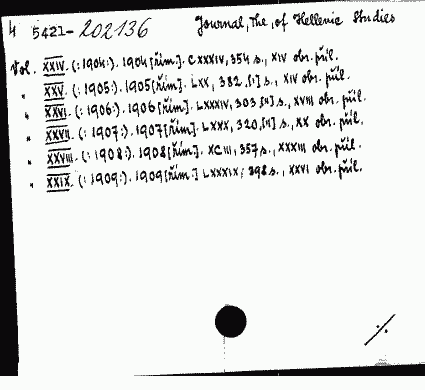 4 5421-202136 Journal, The, of Hellenic Studies
Vol. XXIV. (:1904:). 1904[řím]. CXXXIV, 354 s., XIV obr. příl.
" XXV. (:1905:). 1905[řím]. LXX, 382, [1] s., XIV obr. příl.
" XXVI. (:1906:). 1906[řím]. LXXXIV, 303, [1] s., XVIII obr. příl.
" XXVII. (:1907:). 1907[řím.]. LXXX, 320, [1] s., XX obr. příl.
" XXVIII. (:1908:). 1908[řím]. XCIII, 357 s., XXXIII obr. příl.
" XXIX. (:1909:). 1909[řím.] LXXXIX, 398 s., XXVI obr. příl.
./.